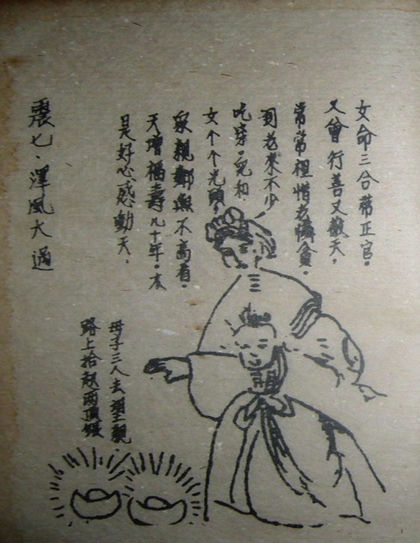 女命三合带正官。
又曾行善又敬天。
常常裡惜老憐貧。
到老來不少
吃穿。兒和
女个个光頭。
親鄰無不高看。
天增福壽九十年。本
是好心感動天。
母子三人去望親
路上拾起兩銀
震七·澤風大過